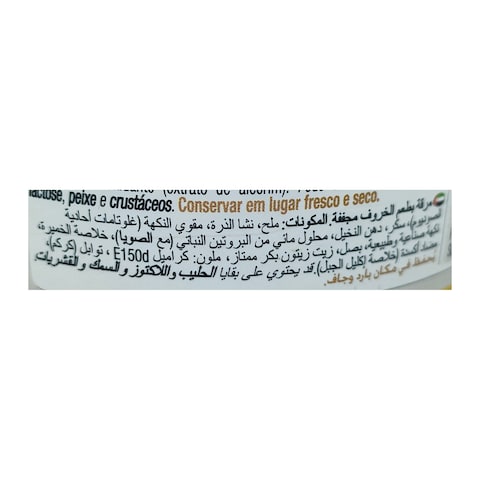 lactose, peixe e crustáceos. Conservar em lugar fresco e seco.
مرقة بطعم الخروف مجففة المكونات: ملح، نشا الذرة، مقوي النكهة (غلوتامات أحادية
الصوديوم)، سكر، دهن النخيل، محلول مائي من البروتين النباتي (مع الصويا)، خلاصة الخميرة،
نكهة صناعية وطبيعية، بصل، زيت زيتون بكر ممتاز، ملون: كراميل E150d، توابل (كركم)،
مضاد أكسدة (خلاصة إكليل الجبل). قد يحتوي على بقايا الحليب واللاكتوز و السمك و القشريات.
يحفظ في مكان بارد وجاف.